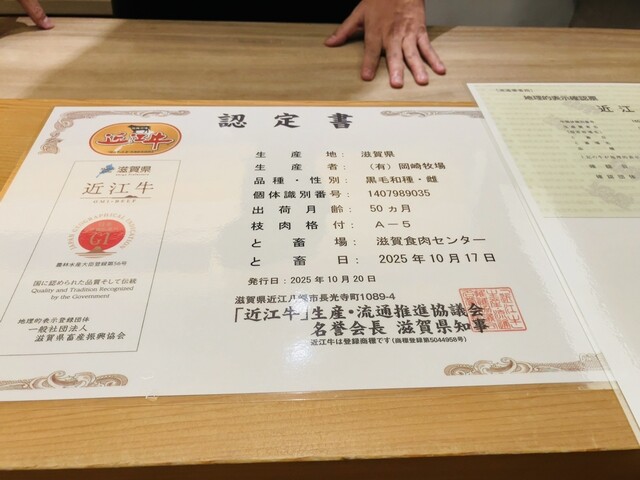 認定書
近江牛
滋賀県
近江牛
OMI BEEF
JAPAN GEOGRAPHICAL INDICATION
GI
農林水産大臣登録第56号
国に認められた品質そして伝統
Quality and Tradition Recognized
by the Government
地理的表示登録団体
一般社団法人
滋賀県畜産振興協会
生産地：滋賀県
生産者：（有）岡崎牧場
品種・性別：黒毛和種・雌
個体識別番号：1407989035
出荷月齢：50ヵ月
枝肉格付：A－5
と畜場：滋賀食肉センター
と畜日：2025年10月17日
発行日：2025年10月20日
滋賀県近江八幡市長光寺町1089-4
「近江牛」生産・流通推進協議会
名誉会長 滋賀県知事
近江牛は登録商標です（商標登録第5044958号）
地理的表示確認書
近江